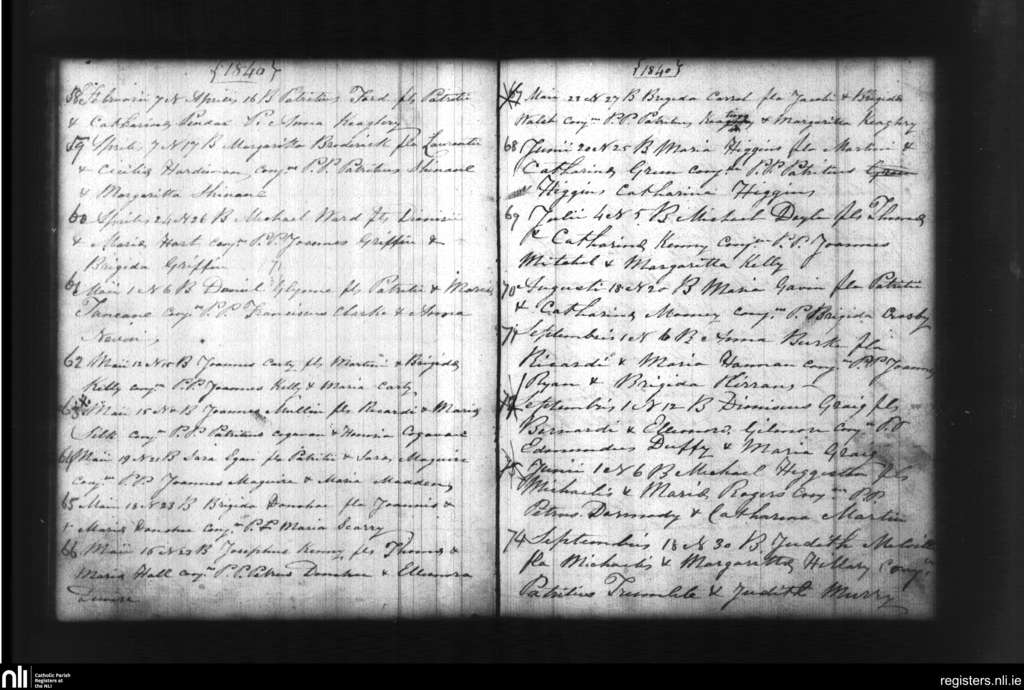 {1840}
58 Februarii 7 N Aprilis 16 B Patritius Ford fls Patritii
& Catharina S. Anna Keaghry
59 Aprilis 7 N 17 B Margaritta Broderick fla Laurentii
& Cecilia Hardiman conj. P.P. Patritius Shinane
& Margaritta Shinane
60 Aprilis 24 N 26 B Michael Ward fls
& Maria Hart conj. P.P. Joannes Griffin &
Brigida Griffin
61 Maii 1 N 6 B Daniel Glynne fls Patritii & Maria
conj. P.P. Franciscus Clarke & Anna
Nevin
62 Maii 12 N B Joannes Carty fls Martini & Brigida
Kelly conj. P.P. Joannes Kelly & Maria Carty
Maii 15 N B Joannes Mullin fls Ricardi & Maria
Silk conj. P.P. Patritius Cogavan & Honoria Cogavan
64 Maii 19 N 21 B Sara Egan fla Patritii & Sara Maguire
conj. P.P. Joannes Maguire & Maria Madden
65 Maii 18 N 23 B Brigida Donohue fla Joannis &
Maria Donohue conj. P.P. Maria Scarry
66 Maii 16 N B Josephus Kenny fls Thoma &
Maria Hall conj. P.P. Petrus Donohue & Elleonora
{1840}
67 Maii 23 N 27 B Brigida Carrol fla Jacobi & Brigida
Walsh conj. P.P. Patritius & Margaritta Keaghry
68 Junii 20 N 25 B Maria Higgins fla Martini &
Catharina Green conj. P.P. Patritius Green
& Higgins Catharina Higgins
69 Julii 4 N 5 B Michael Doyle fls Thoma
& Catharina Kenny conj. P.P. Joannes
Mitchel & Margaritta Kelly
70 Augusti 18 N 20 B Maria Gavin fla Patritii
& Catharina Mooney conj. P. Brigida Crosby
71 Septembris 1 N 6 B Anna Burke fla
Ricardi & Maria Hannan conj. P.P. Joannes
Ryan & Brigida Kirrans
Septembris 1 N 12 B Dionisius Graig fls
Bernardi & Elleonora Gilmore conj. P.P
Edmondus Duffy & Maria Graig
Junii 1 N 6 B Michael Higgerton fls
Michaelis & Maria Rogers conj. P.P.
Petrus Darmody & Catharina Martin
74 Septembris 18 N 30 B Judith
fla Michaelis & Margaritta Hillary conj.
Patritius Trumble & Judith Murry
nli
Catholic Parish
Registers at
the NLI
registers.nli.ie